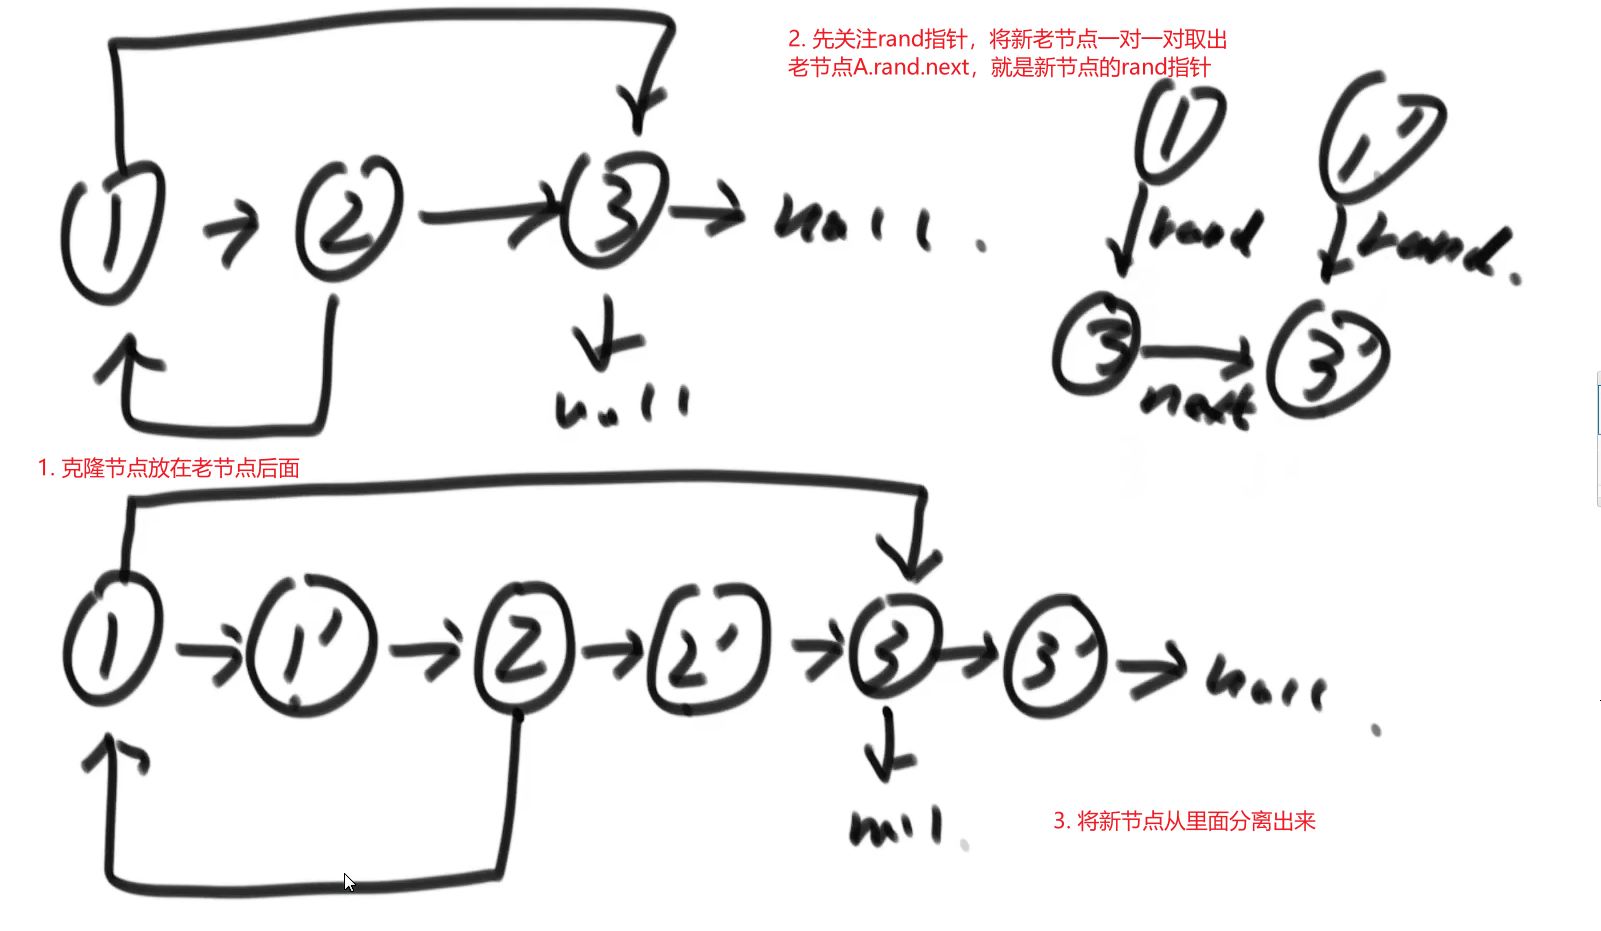 2. 先关注rand指针，将新老节点一对一对取出
老节点A.rand.next，就是新节点的rand指针
1 2 3 null
null
1 1'
rand rand
3 3'
next
1. 克隆节点放在老节点后面
1 1' 2 2' 3 3' null
null
3. 将新节点从里面分离出来